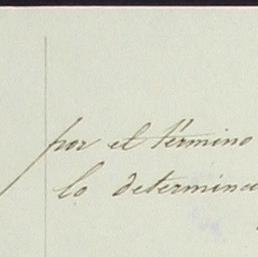 por el término
lo determina